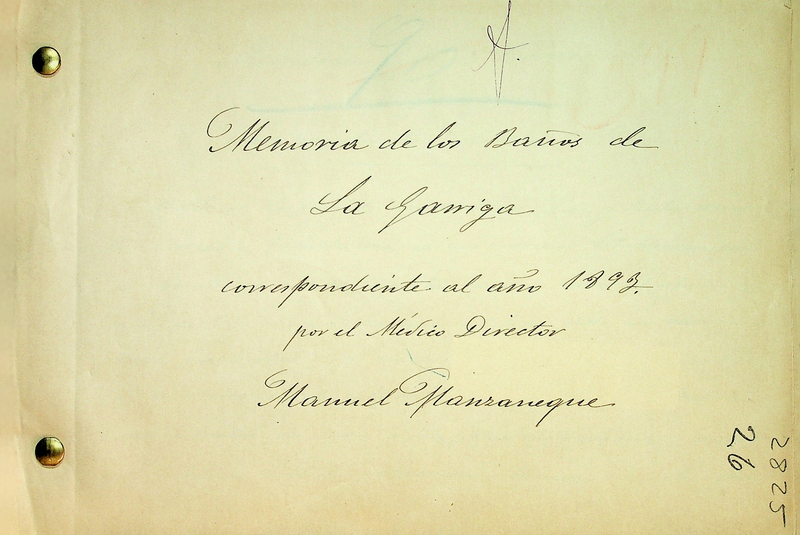 Memoria de los Baños de
La Garriga
correspondiente al año 1893.
por el Médico Director
Manuel Manzaneque
2825
26